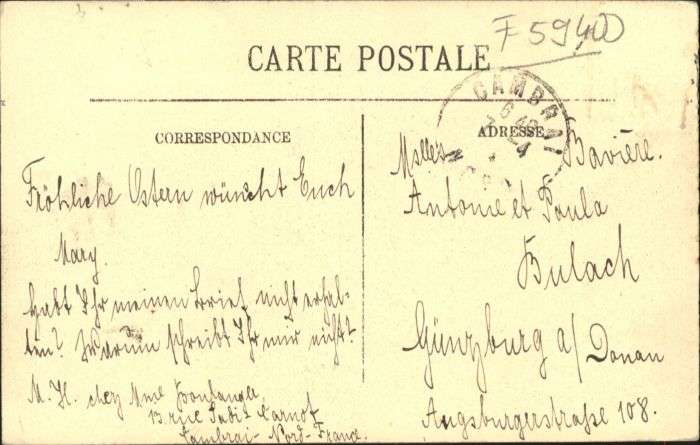 F 59400
CARTE POSTALE
CAMBRAI
CORRESPONDANCE
Fröhliche Ostern wünscht Euch
Mary.
Habt Ihr meinen Brief nicht erhal-
ten? Warum schreibt Ihr mir nicht?
M. H. chez Mme Boulanger
13 rue Sadi Carnot
Cambrai - Nord - France.
ADRESSE
Mlles Bavière.
Antonie et Paula
Bulach
Günzburg a/ Donau
Augsburgerstraße 108.